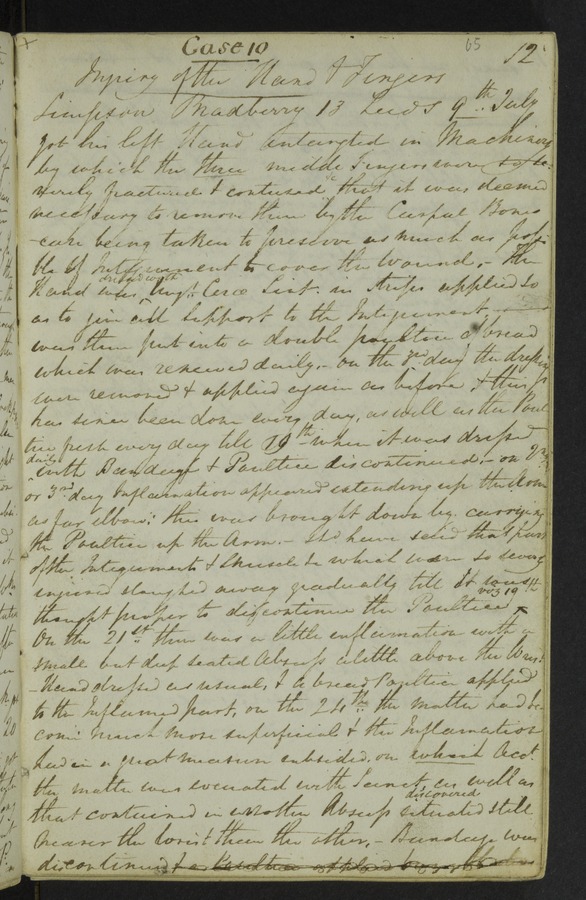 Case 10
65
12
Injury of the Hand & Fingers
Simpson Madberry 13 Leeds 9th July
got his left Hand entangled in Machinery
by which the three middle Fingers were so se-
verely fractured & contused that it was deemed
necessary to remove them by the Carpal Bones
-care being taken to preserve as much as possi-
ble of Integument to cover the wound,- The
Hand was dressed with Ungt. Cerae Lint. in strips applied so
as to give all support to the Integument,
was then put into a double poultice of bread
which was renewed daily,- on the 3rd day the dressings
were removed & applied again as before, & this
has since been done every day, as well as the Poul
tice fresh every day till 19th when it was dressed
daily with Bandage & Poultice discontinued,- on 2nd
or 3rd day Inflamation appeared extending up the Arm
as far elbow; this was brought down by carrying
the Poultice up the Arm.- and have said that part
of the Integuments & Muscle which were so severely
injured sloughed away gradually till it was
thought proper to discontinue the Poultice viz 19th
On the 21st there was a little inflamation with a
small but deep seated Abscess a little above the Wrist
-Hand dressed as usual, & a bread Poultice applied
to the Inflamed part, on the 24th the matter had be
come much more superficial & the Inflamation
had in a great measure subsided, on which acct.
the matter was evacuated with Lancet as well as
that contained in another Abscess discovered situated still
nearer the wrist than the other,- Bandage was
discontinued & a Poultice applied